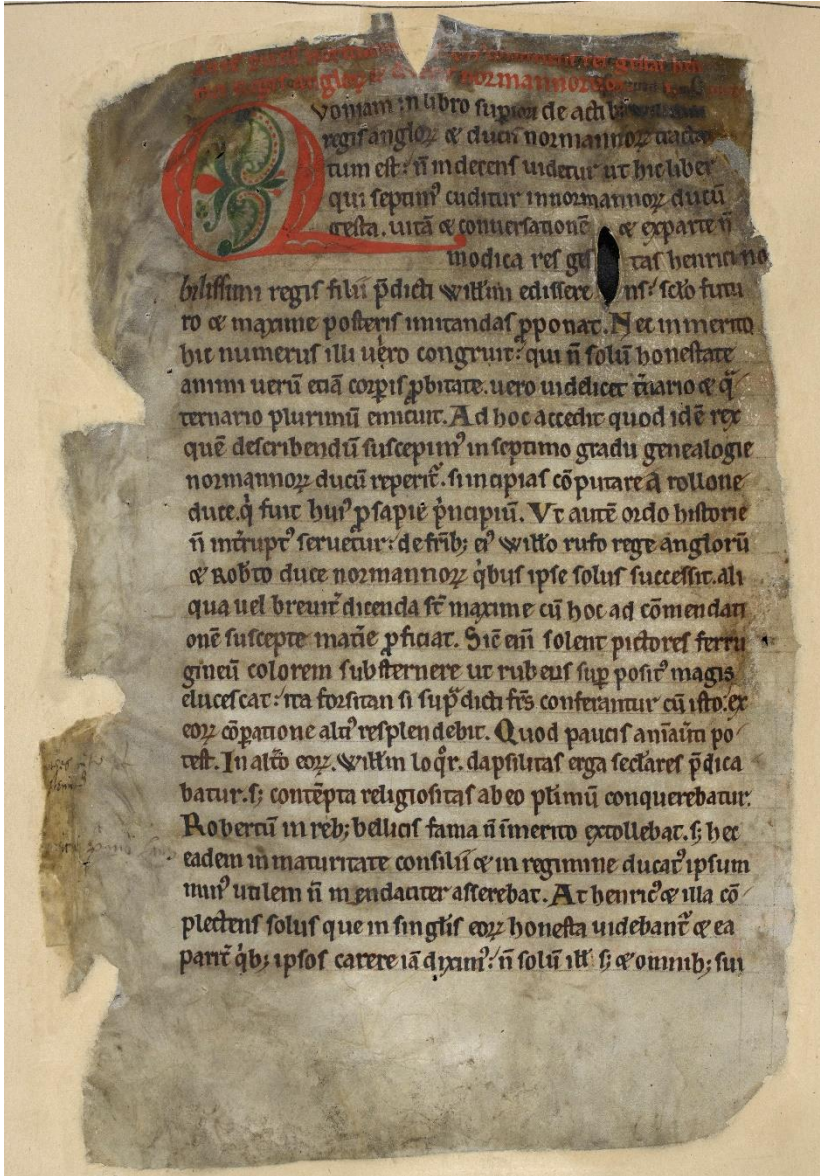 regis anglorꝝ & normannorꝝ
Quoniam in libro superiori de actib
regis anglorꝝ & ducū normannorꝝ tracta
tum est: n̄ indecens uidetur ut hic liber
qui septim᷒ cuditur in normannorꝝ ducū
gesta. uitā & conuersationē & ex parte n̄
modica res ges tas henrici no
bilissimi regis filii p̄dicti Willīmi edissere ns: sc̄lo futu
ro & maxime posteris imitandas ꝓponat. Nec inmerito
hic numerus illi uero congruit: qui n̄ solū honestate
animi uerū etiā corpis ꝓbitate. uero uidelicet t̄nario & q̄
ternario plurimū enicuit. Ad hoc accedit quod idē rex
quē describendū suscepim᷒ in septimo gradu genealogie
normannorꝝ ducū reperit᷑. si incipias cōputare a rollone
duce. q̇ fuit hui᷒ ꝓsapiē ṗncipiū. Vt autē ordo historie
n̄ int̄rupt᷒ seruetur: de frīb; ei᷒ Willo rufo rege anglorū
& Robto duce normannorꝝ q̇bus ipse solus successit. ali
qua uel breuit᷑ dicenda st̄ maxime cū hoc ad cōmendati
onē suscepte mat̄ie ꝓficiat. Sic eni solent pictores ferru
gineū colorem substernere ut rubeus suꝑ posit᷒ magis
elucescat: ita forsitan si sup̄dicti fr̄s conferantur cū isto. ex
eorꝝ cōparatione alti᷒ resplendebit. Quod paucis aniaūti po
test. In alt̄o eorꝝ. Willm loq̇r. dapsilitas erga sec̄lares p̄dica
batur. s; contēpta religiositas ab eo pl̄imū conquerebatur.
Robertū in reb; bellicis fama n̄ īmerito extollebat. s; hec
eadem in maturitate consilii & in regimine ducat᷒ ipsum
min᷒ utilem n̄ mendaciter asserebat. At henric᷒ & illa cō
plectens solus que in singl̄is eorꝝ honesta uidebant᷑ & ea
parit᷑ q̇b; ipsos carere iā dixim᷒: n̄ solū ill s; & omnib; sui